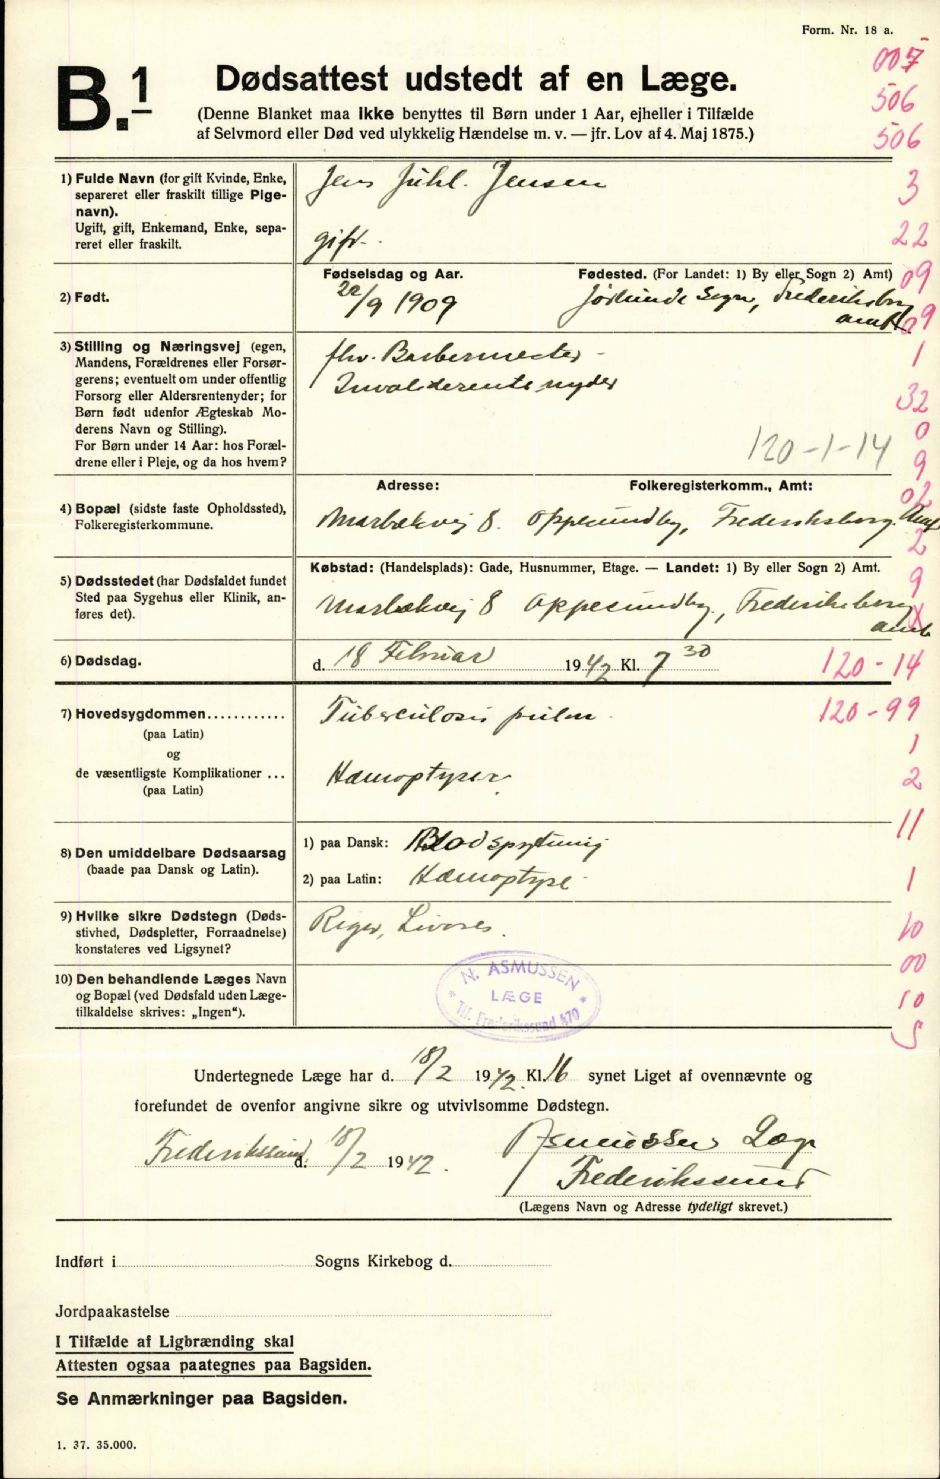 Form. Nr. 18 a.
B.1
Dødsattest udstedt af en Læge.
(Denne Blanket maa ikke benyttes til Børn under 1 Aar, ejheller i Tilfælde
af Selvmord eller Død ved ulykkelig Hændelse m. v. — jfr. Lov af 4. Maj 1875.)
007
506
506
1) Fulde Navn (for gift Kvinde, Enke,
separeret eller fraskilt tillige Pige-
navn).
Ugift, gift, Enkemand, Enke, sepa-
reret eller fraskilt.
Jens Juhl. Jensen
gift.
3
22
2) Født.
Fødselsdag og Aar.
22/9 1909
Fødested. (For Landet: 1) By eller Sogn 2) Amt)
Jørlunde Sogn, Frederiksborg
amt
09
09
3) Stilling og Næringsvej (egen,
Mandens, Forældrenes eller Forsør-
gerens; eventuelt om under offentlig
Forsorg eller Aldersrentenyder; for
Børn født udenfor Ægteskab Mo-
derens Navn og Stilling).
For Børn under 14 Aar: hos Foræl-
drene eller i Pleje, og da hos hvem?
fhv. Barbermester
Invaliderentenyder
120-1-14
1
32
0
9
4) Bopæl (sidste faste Opholdssted),
Folkeregisterkommune.
Adresse:
Folkeregisterkomm., Amt:
Marbækvej 8. Oppesundby, Frederiksborg Amt
02
2
5) Dødsstedet (har Dødsfaldet fundet
Sted paa Sygehus eller Klinik, an-
føres det).
Købstad: (Handelsplads): Gade, Husnummer, Etage. — Landet: 1) By eller Sogn 2) Amt.
Marbækvej 8 Oppesundby, Frederiksborg
amt
9
X
6) Dødsdag.
d. 18 Februar 1942 Kl. 7 30
120-14
7) Hovedsygdommen............
(paa Latin)
og
de væsentligste Komplikationer ...
(paa Latin)
Tuberculosis pulm.
Hæmoptyser.
120-99
1
2
8) Den umiddelbare Dødsaarsag
(baade paa Dansk og Latin).
1) paa Dansk: Blodspytning
2) paa Latin: Hæmoptyse
11
1
9) Hvilke sikre Dødstegn (Døds-
stivhed, Dødspletter, Forraadnelse)
konstateres ved Ligsynet?
Rigor, Livores.
10
10) Den behandlende Læges Navn
og Bopæl (ved Dødsfald uden Læge-
tilkaldelse skrives: „Ingen").
* N. ASMUSSEN *
LÆGE
Tlf. Frederikssund 470
00
10
5
Undertegnede Læge har d. 18/2 1942. Kl. 16 synet Liget af ovennævnte og
forefundet de ovenfor angivne sikre og utvivlsomme Dødstegn.
Frederikssund d. 18/2 1942.
Asmussen Læge
Frederikssund
(Lægens Navn og Adresse tydeligt skrevet.)
Indført i Sogns Kirkebog d.
Jordpaakastelse
I Tilfælde af Ligbrænding skal
Attesten ogsaa paategnes paa Bagsiden.
Se Anmærkninger paa Bagsiden.
1. 37. 35.000.